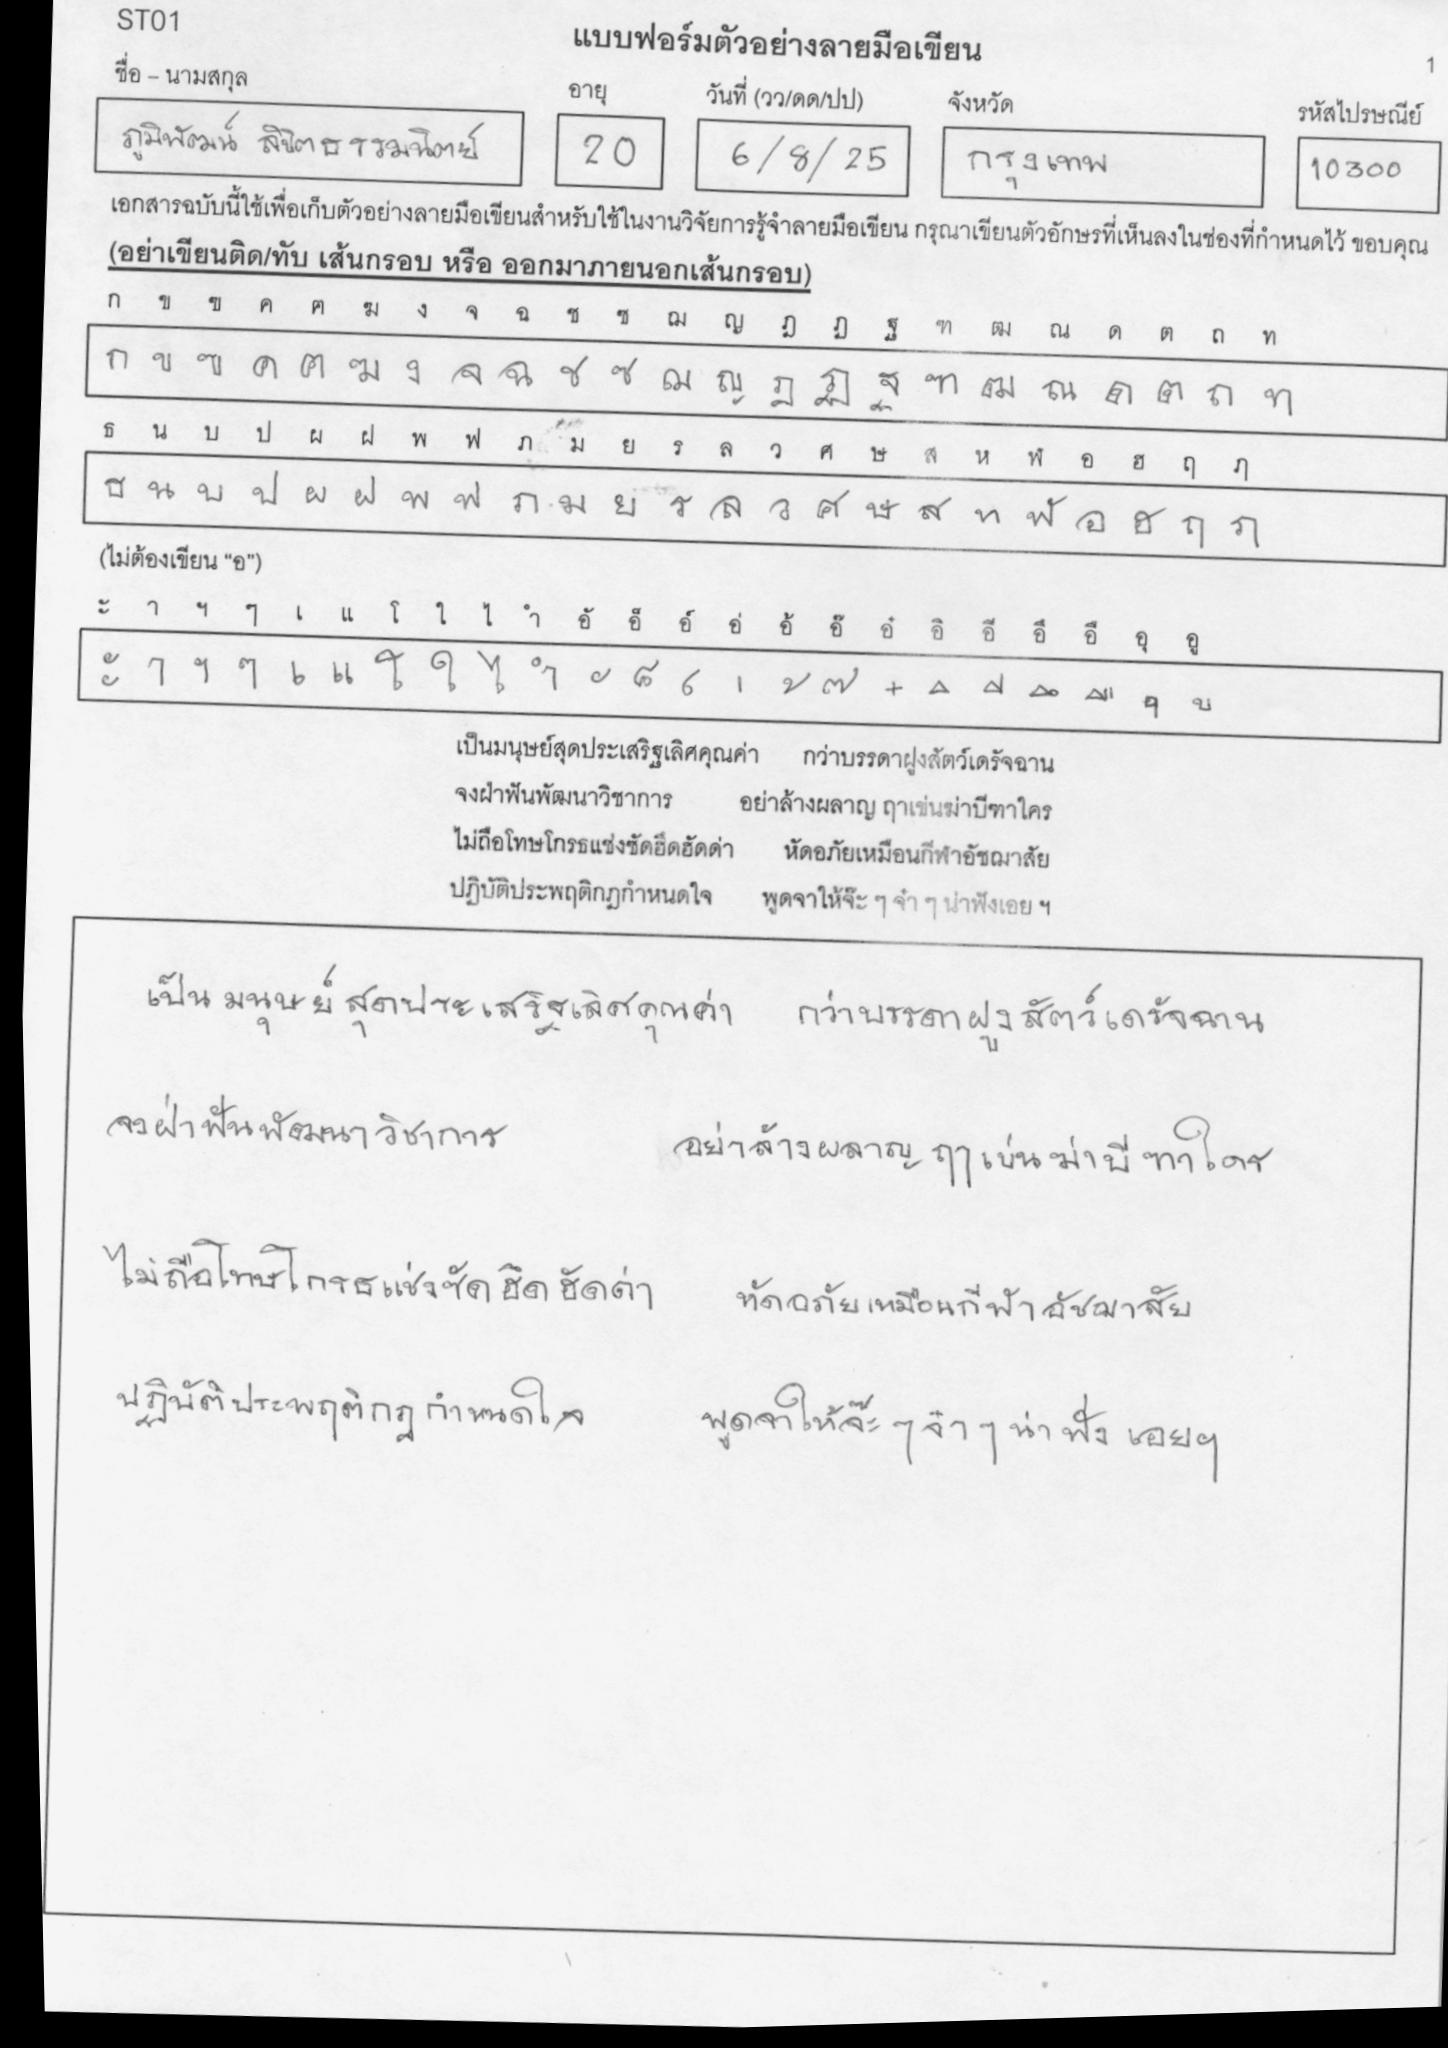 ST01
แบบฟอร์มตัวอย่างลายมือเขียน
1
ชื่อ – นามสกุล อายุ วันที่ (วว/ดด/ปป) จังหวัด รหัสไปรษณีย์
ภูมิพัฒน์ ลิขิตธรรมนิตย์ 20 6/8/25 กรุงเทพ 10300
เอกสารฉบับนี้ใช้เพื่อเก็บตัวอย่างลายมือเขียนสำหรับใช้ในงานวิจัยการรู้จำลายมือเขียน กรุณาเขียนตัวอักษรที่เห็นลงในช่องที่กำหนดไว้ ขอบคุณ
(อย่าเขียนติด/ทับ เส้นกรอบ หรือ ออกมาภายนอกเส้นกรอบ)
ก ข ฃ ค ฅ ฆ ง จ ฉ ช ซ ฌ ญ ฎ ฏ ฐ ฑ ฒ ณ ด ต ถ ท
ก ข ฃ ค ฅ ฆ ง จ ฉ ช ซ ฌ ญ ฎ ฏ ฐ ฑ ฒ ณ ด ต ถ ท
ธ น บ ป ผ ฝ พ ฟ ภ ม ย ร ล ว ศ ษ ส ห ฬ อ ฮ ฤ ฦ
ธ น บ ป ผ ฝ พ ฟ ภ ม ย ร ล ว ศ ษ ส ห ฬ อ ฮ ฤ ฦ
(ไม่ต้องเขียน "อ")
ะ า ฯ ๆ เ แ โ ใ ไ ำ อั อ็ อ์ อ่ อ้ อ๊ อ๋ อิ อี อึ อื อุ อู
ะ า ฯ ๆ เ แ โ ใ ไ ำ ั ็ ์ ่ ้ ๊ ๋ ิ ี ึ ื ุ ู
เป็นมนุษย์สุดประเสริฐเลิศคุณค่า กว่าบรรดาฝูงสัตว์เดรัจฉาน
จงฝ่าฟันพัฒนาวิชาการ อย่าล้างผลาญ ฤาเข่นฆ่าบีฑาใคร
ไม่ถือโทษโกรธแช่งซัดฮึดฮัดด่า หัดอภัยเหมือนกีฬาอัชฌาสัย
ปฏิบัติประพฤติกฎกำหนดใจ พูดจาให้จ๊ะ ๆ จ๋า ๆ น่าฟังเอย ฯ
เป็นมนุษย์สุดประเสริฐเลิศคุณค่า กว่าบรรดาฝูงสัตว์เดรัจฉาน
จงฝ่าฟันพัฒนาวิชาการ อย่าล้างผลาญ ฤาเข่นฆ่าบีฑาใคร
ไม่ถือโทษโกรธแช่งซัดฮึดฮัดด่า หัดอภัยเหมือนกีฬาอัชฌาสัย
ปฏิบัติประพฤติกฎกำหนดใจ พูดจาให้จ๊ะ ๆ จ๋า ๆ น่าฟังเอยฯ